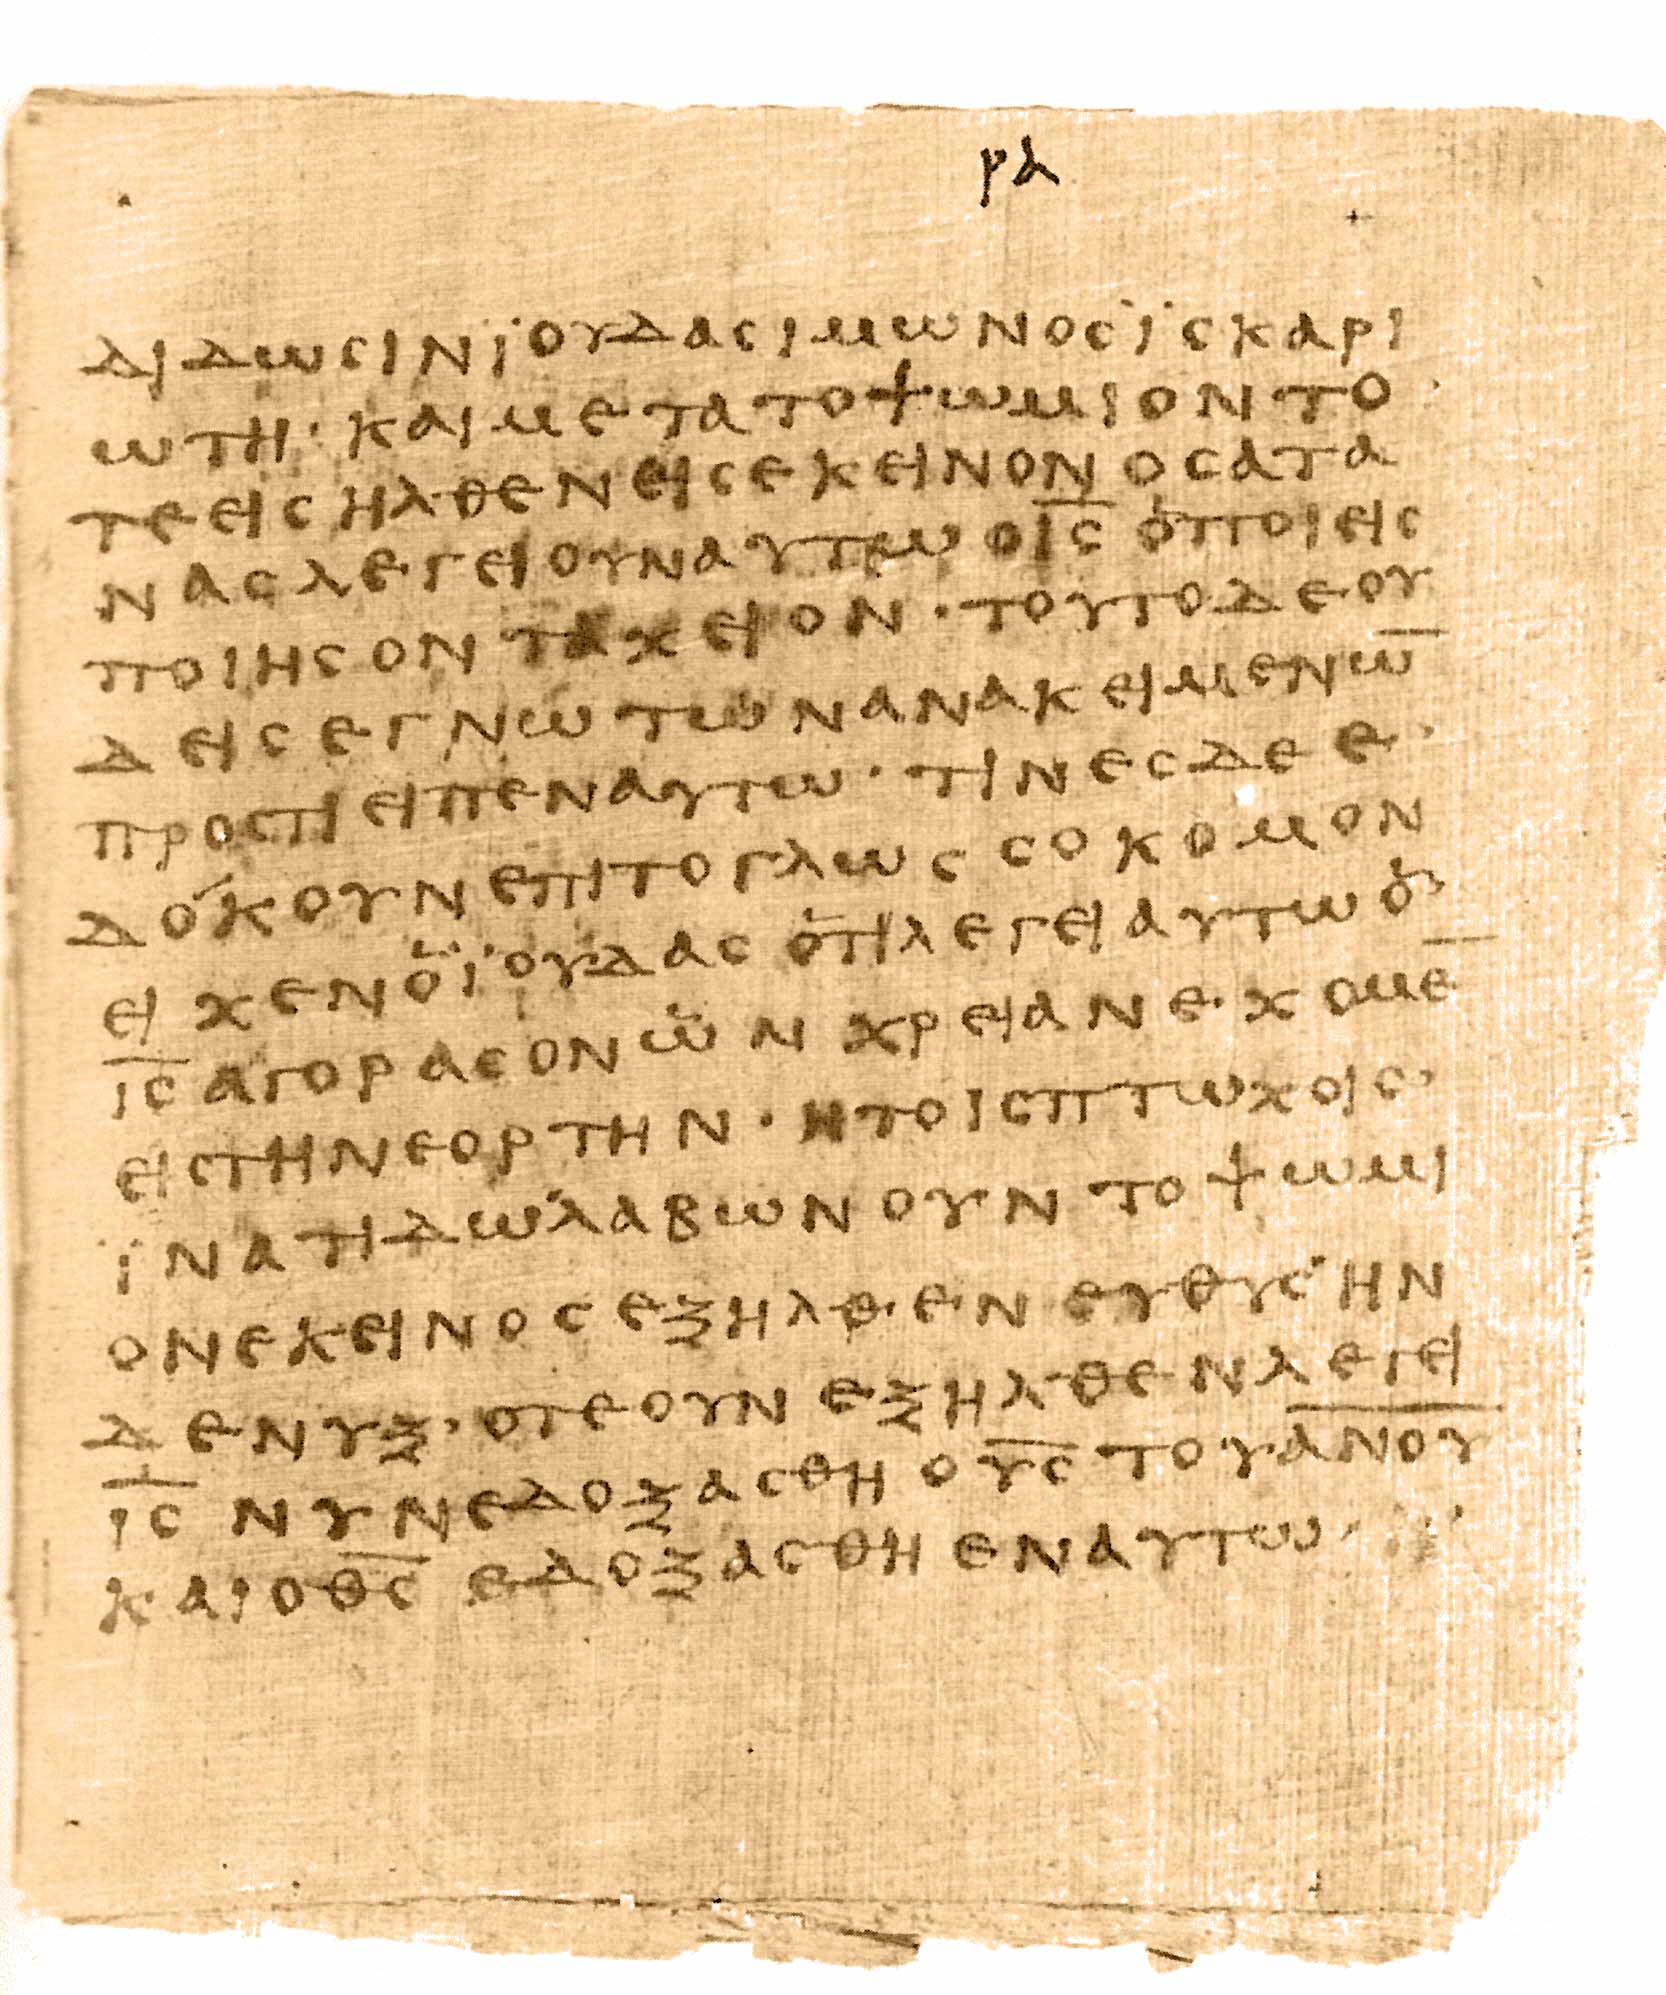 ρα
διδωσινϊουδασιμωνοσϊσκαρι
ωτη· καιμετατοψωμιοντο
τεεισηλθενεισεκεινονοσατα
νασλεγειουναυτωοι̅σ̅ ὁποιεισ
ποιησονταχειον· τουτοδεου
δεισεγνωτωνανακειμενω̅
προστιειπεναυτω· τινεσδεε
δοκουνεπιτογλωσσοκομον
ειχενὁϊουδασ ὁτιλεγειαυτωὁ
ι̅σ̅ αγορασονὡν χρειανεχομε̅
ειστηνεορτην· ητοισπτωχοισ·
ϊνατιδω λαβωνουντοψωμι
ονεκεινοσεξηλθενευθυσ· ην
δενυξ· οτεουνεξηλθενλεγει
ι̅σ̅ νυνεδοξασθηου̅σ̅ τουα̅ν̅ο̅υ̅
καιοθ̅σ̅ εδοξασθηεναυτω·